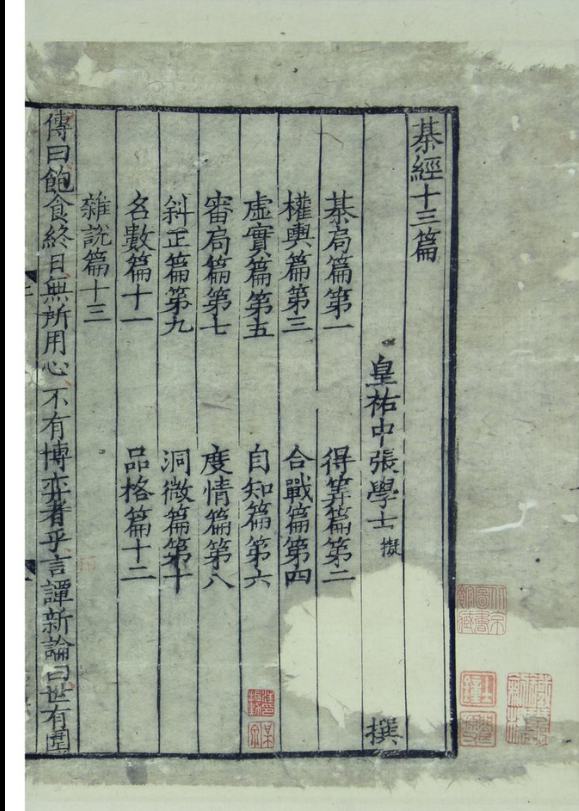 棊經十三篇
皇祐中張學士 擬 撰
棊局篇第一 得筭篇第二
權輿篇第三 合戰篇第四
虛實篇第五 自知篇第六
審局篇第七 度情篇第八
斜正篇第九 洞微篇第十
名數篇十一 品格篇十二
雜說篇十三
傳曰飽食終日無所用心不有博弈者乎言譚新論曰世有圍